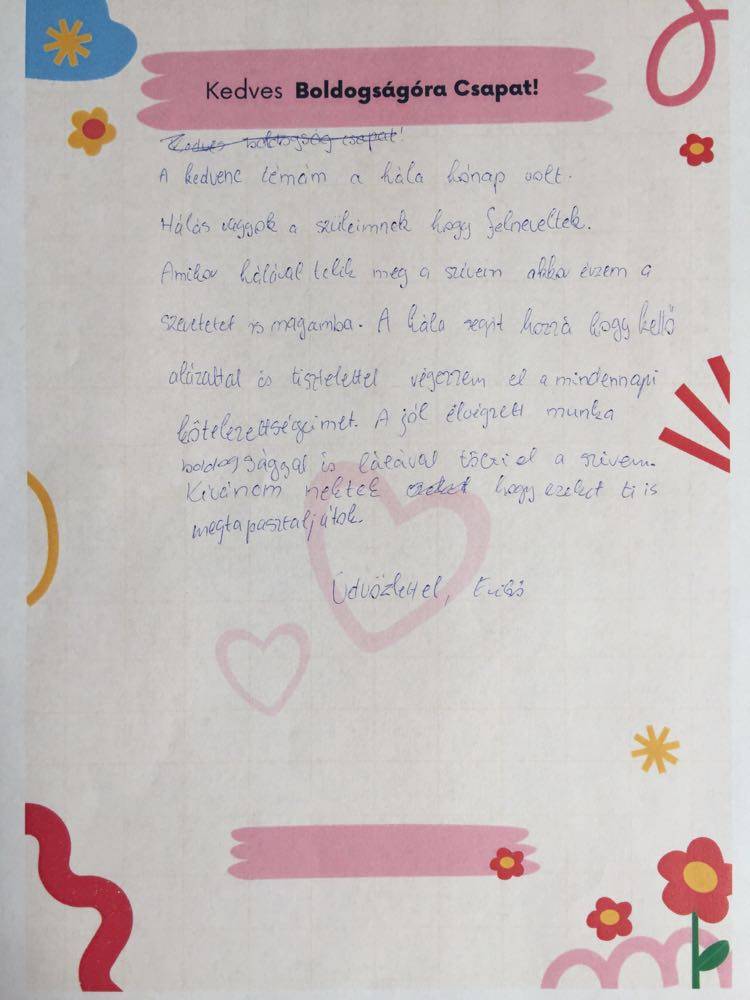 Kedves Boldogságóra Csapat!
Kedves boldogság csapat!
A kedvenc témám a hála hónap volt.
Hálás vagyok a szüleimnek hogy felneveltek.
Amikor hálával telik meg a szívem akkor érzem a
szeretetet is magamba. A hála segít hozzá hogy kellő
alázattal és tisztelettel végezzem el a mindennapi
kötelezettségeimet. A jól elvégzett munka
boldogsággal és hálával tölti el a szívem.
Kívánom nektek hogy ezeket ti is
megtapasztaljátok.
Üdvözlettel,